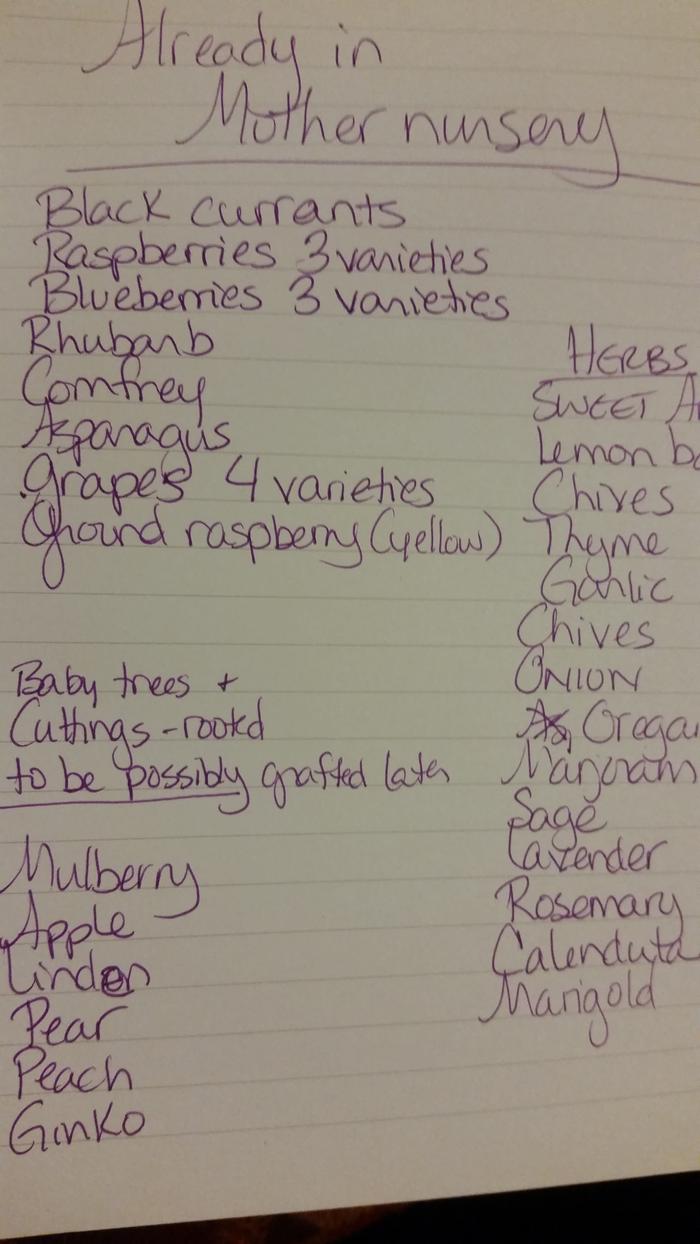 Already in
Mother nursery
Black currants
Raspberries 3 varieties
Blueberries 3 varieties
Rhubarb
Comfrey
Asparagus
Grapes 4 varieties
Ground raspberry (yellow)
Baby trees +
Cuttings - rootd
to be possibly grafted later
Mulberry
Apple
Linden
Pear
Peach
Ginko
HERBS
SWEET
Lemon
Chives
Thyme
Garlic
Chives
ONION
Marjoram
Sage
Lavender
Rosemary
Calendula
Marigold